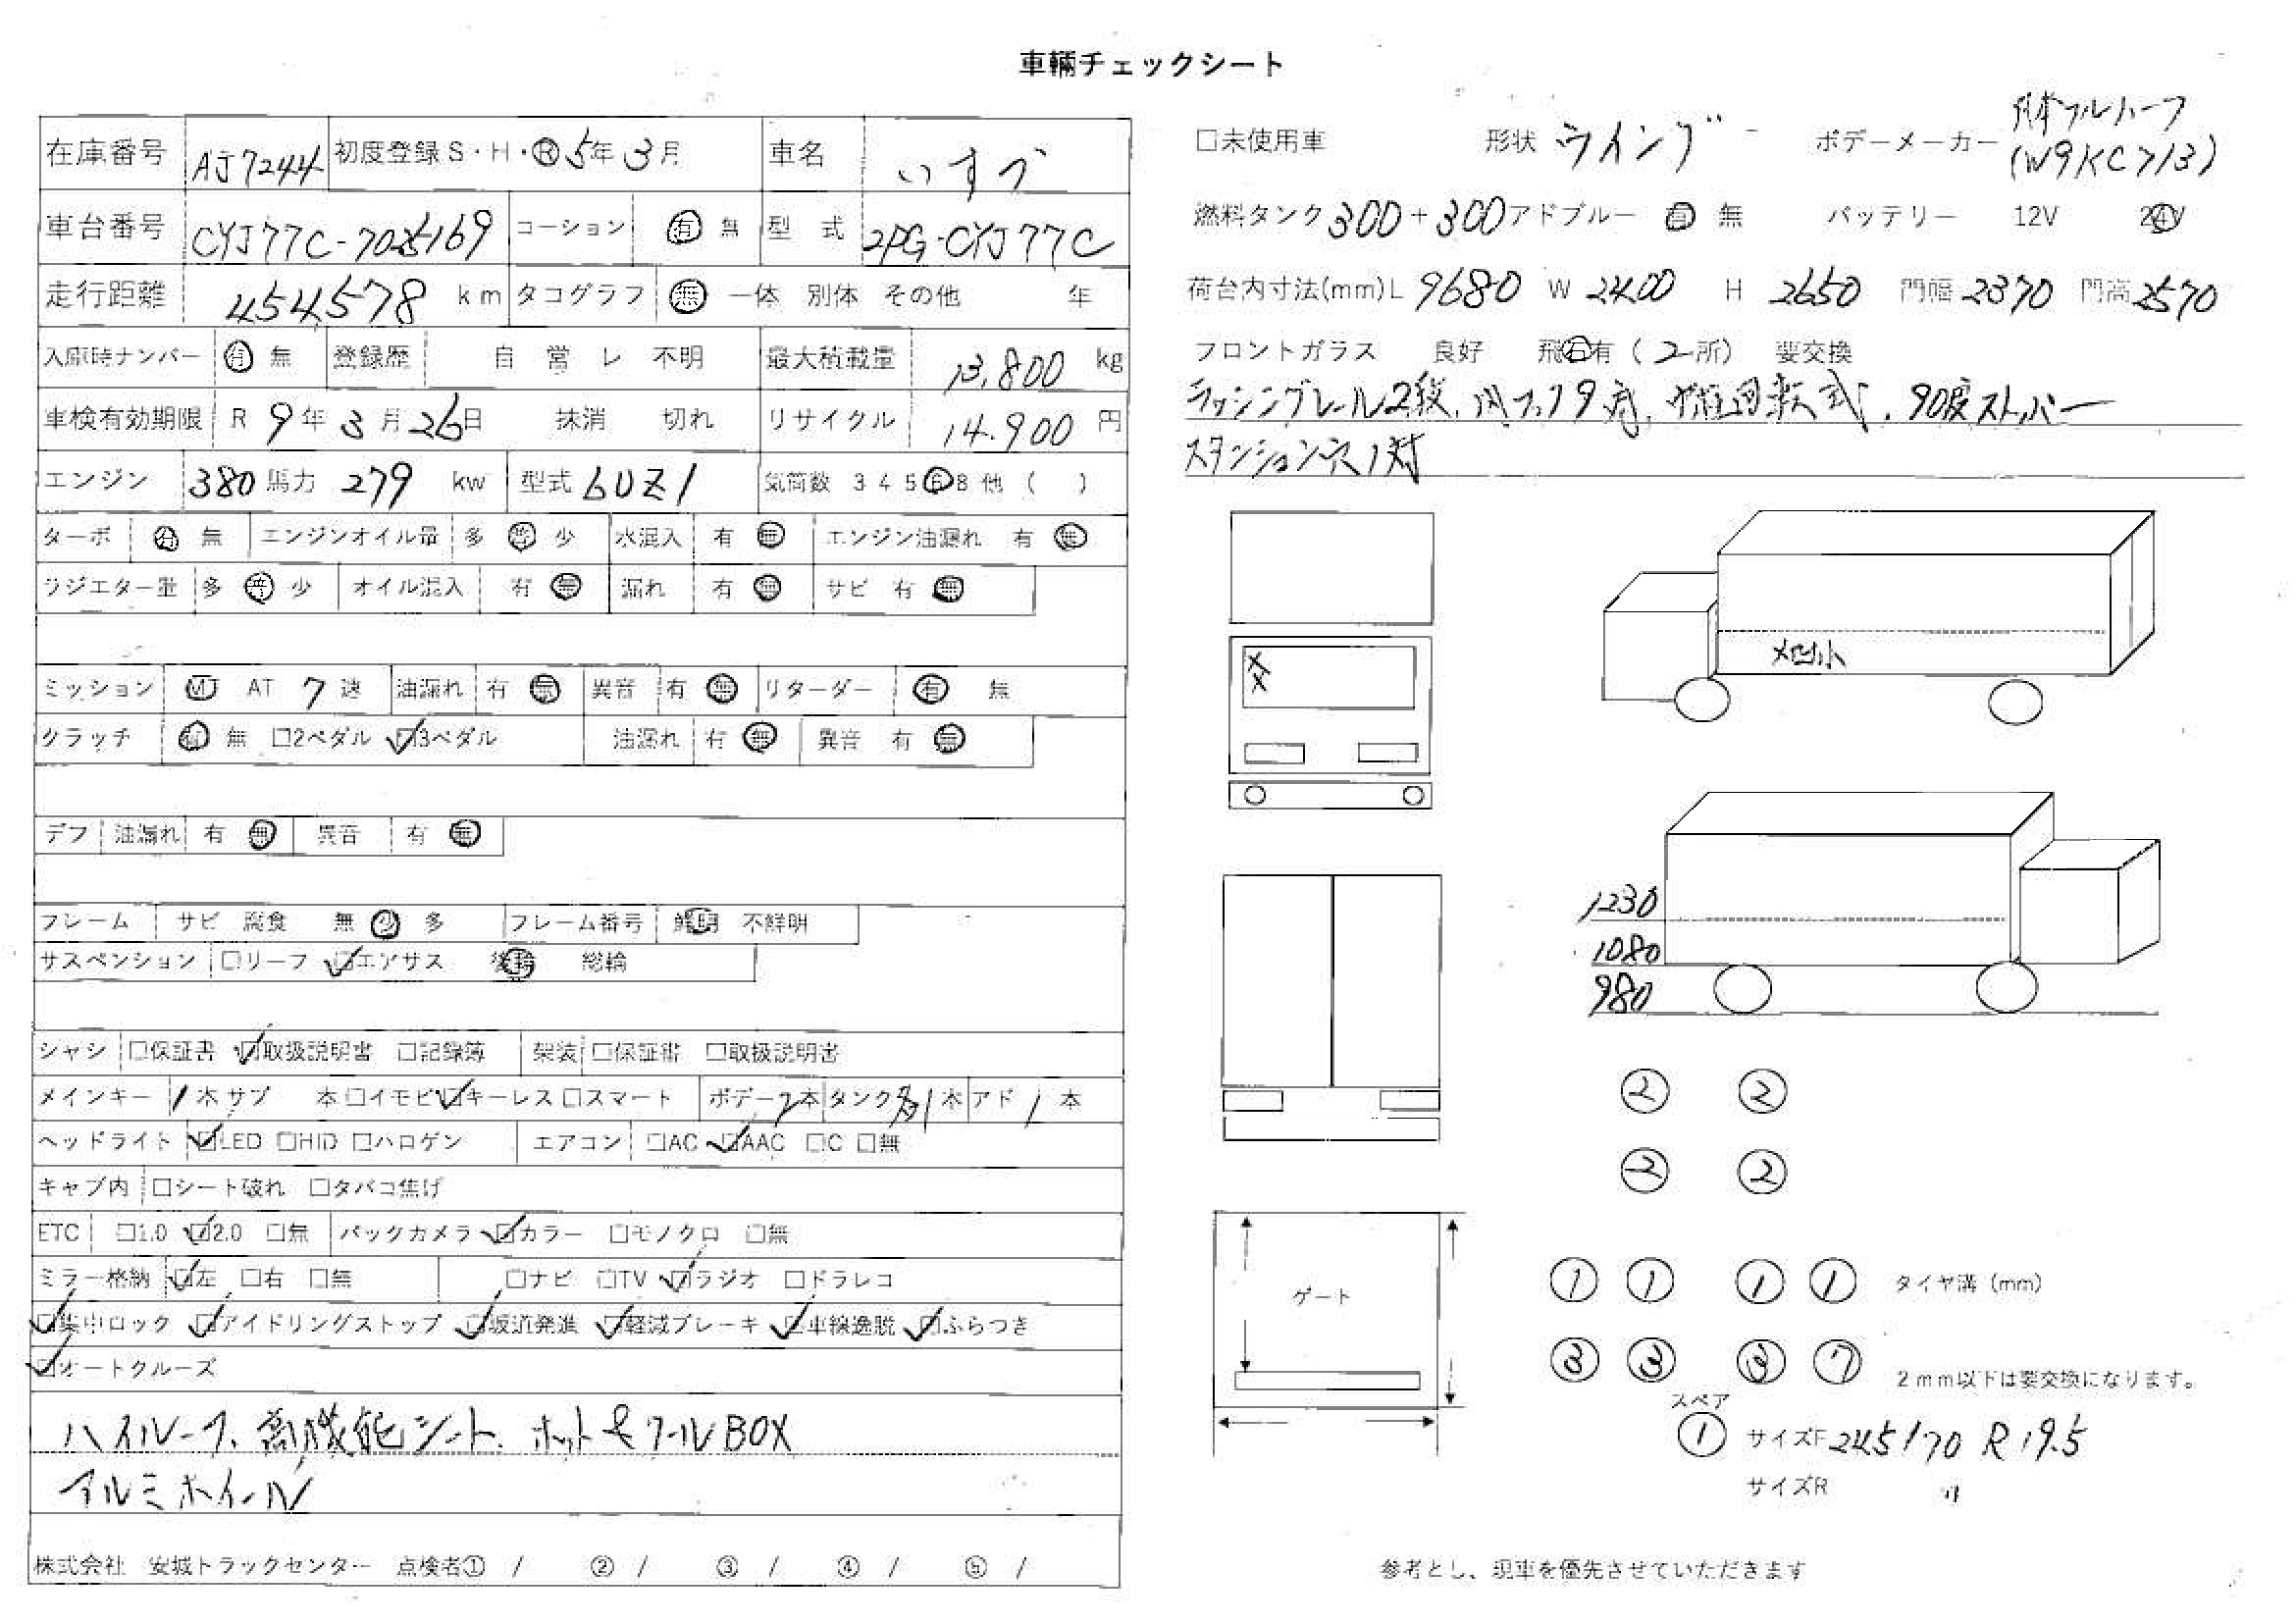 車輛チェックシート
在庫番号 AJ7244 初度登録 S・H・R 5年 3月 車名 いすゞ
車台番号 CYJ77C-7025169 コーション 有 無 型 式 2PG-CYJ77C
走行距離 454578 km タコグラフ 無 一体 別体 その他 年
入庫時ナンバー 有 無 登録歴 自 営 レ 不明 最大積載量 13,800 kg
車検有効期限 R 9年 3月 26日 抹消 切れ リサイクル 14.900 円
エンジン 380馬力 279 kw 型式 6UZ1 気筒数 3 4 5 6 8 他 ( )
ターボ 有 無 エンジンオイル量 多 普 少 水混入 有 無 エンジン油漏れ 有 無
ラジエター量 多 普 少 オイル混入 有 無 漏れ 有 無 サビ 有 無
ミッション MT AT 7速 油漏れ 有 無 異音 有 無 リターダー 有 無
クラッチ 有 無 □2ペダル ☑3ペダル 油漏れ 有 無 異音 有 無
デフ 油漏れ 有 無 異音 有 無
フレーム サビ 腐食 無 少 多 フレーム番号 鮮明 不鮮明
サスペンション □リーフ ☑エアサス 後輪 総輪
シャシ □保証書 ☑取扱説明書 □記録簿 架装 □保証書 □取扱説明書
メインキー 1本 サブ 本 □イモビ ☑キーレス □スマート ボデー 2本 タンク 1本 アド 1本
ヘッドライト ☑LED □HID □ハロゲン エアコン □AC ☑AAC □C □無
キャブ内 □シート破れ □タバコ焦げ
ETC □1.0 ☑2.0 □無 バックカメラ ☑カラー □モノクロ □無
ミラー格納 ☑左 □右 □無 □ナビ □TV ☑ラジオ □ドラレコ
☑集中ロック ☑アイドリングストップ ☑坂道発進 ☑軽減ブレーキ ☑車線逸脱 ☑ふらつき
☑オートクルーズ
ハイルーフ、高機能シート、ホット&クールBOX
アルミホイール
株式会社 安城トラックセンター 点検者① / ② / ③ / ④ / ⑤ /
□未使用車 形状 ウイング ボデーメーカー 日本フルハーフ
(W9KC713)
燃料タンク 300+300 アドブルー 有 無 バッテリー 12V 24V
荷台内寸法(mm)L 9680 W 2400 H 2650 門幅 2370 門高 2570
フロントガラス 良好 飛石有 (2所) 要交換
ラッシングレール2段、 9対、中柱回転式、90度ストッパー
スタンション穴1対
1230
1080
980
② ②
② ②
① ① ① ① タイヤ溝 (mm)
③ ③ ③ ⑦ 2mm以下は要交換になります。
ゲート
スペア
① サイズF 245/70 R19.5
サイズR 〃
参考とし、現車を優先させていただきます